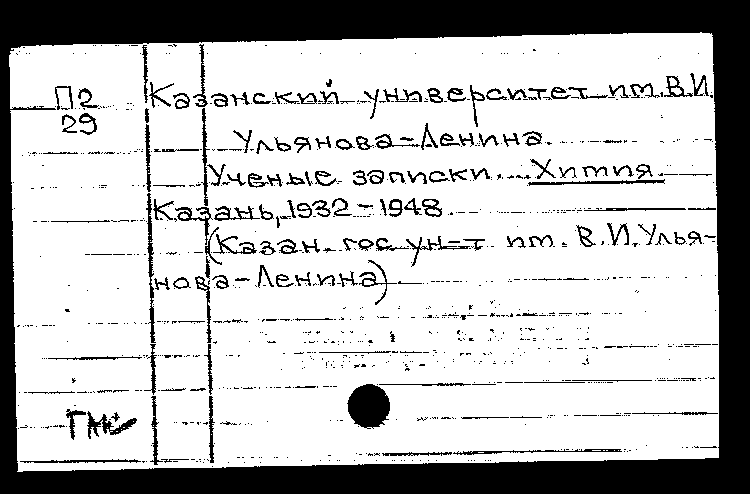 П2
29
Казанский университет им. В.И.
Ульянова-Ленина.
Ученые записки. Химия.
Казань, 1932-1948.
(Казан. гос ун-т им. В.И. Улья-
нова-Ленина).